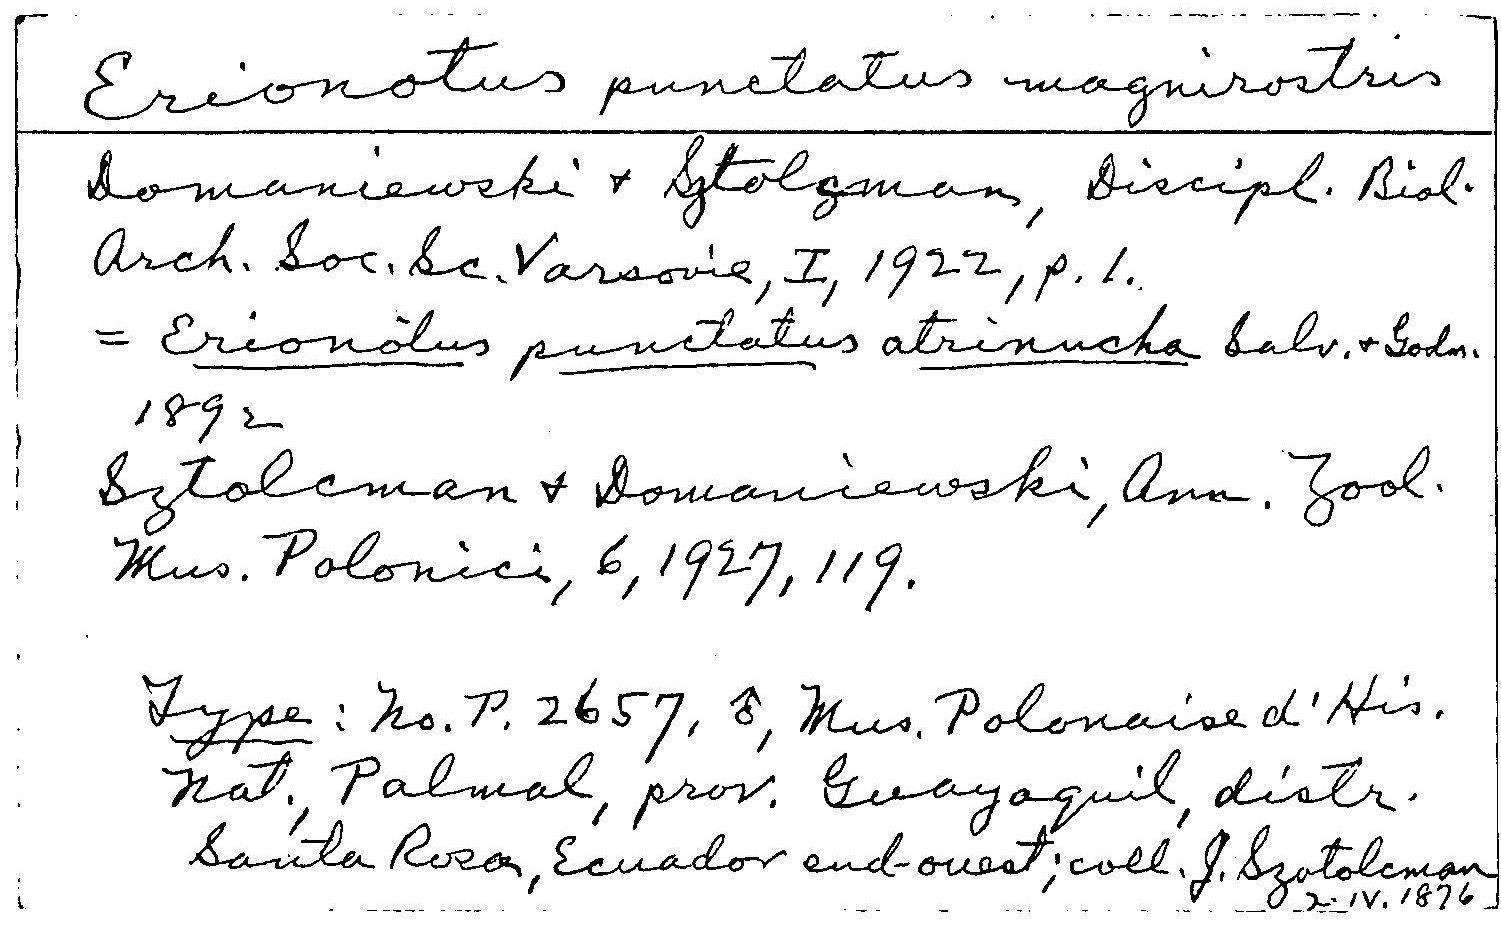 Erionotus punctatus magnirostris
Domaniewski & Sztolzman, Discipl. Biol.
Arch. Soc. Sc. Varsovie, I, 1922, p. 1.
= Erionotus punctatus atrinucha Salv. & Godm.
1892
Sztolcman & Domaniewski, Ann. Zool.
Mus. Polonici, 6, 1927, 119.
Type: No. P. 2657, ♂, Mus. Polonaise d'His.
Nat., Palmal, prov. Guayaquil, distr.
Santa Rosa, Ecuador sud-ouest; coll. J. Sztolcman
2. IV. 1876